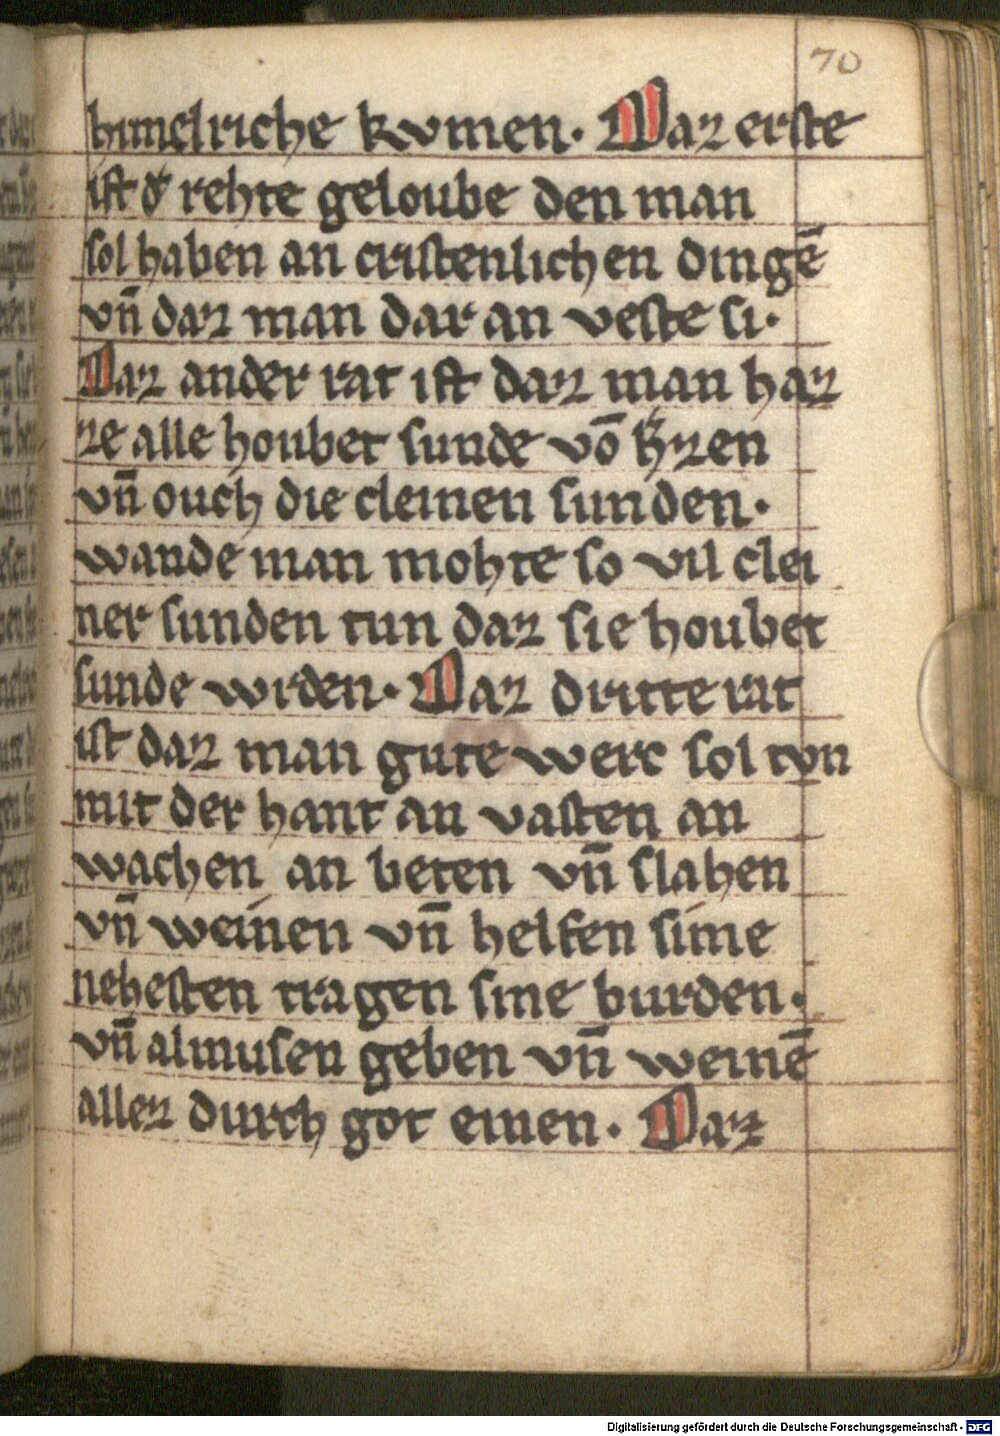 70
himelriche kvmen. Daz erste
ist d͛ rehte geloube den man
sol haben an cristenlichen dingē
vn̄ daz man dar an veste si.
Daz ander rat ist daz man haz
ze alle houbet sunde vō h͛zen
vn̄ ouch die cleinen sunden.
wande man mohte so vil clei
ner sunden tun daz sie houbet
sunde wrden. Daz dritte rat
ist daz man gute werc sol tvn
mit der hant an vasten an
wachen an beten vn̄ slahen
vn̄ weinen vn̄ helfen sime
nehesten tragen sine burden.
vn̄ almusen geben vn̄ weinē
allez durch got einen. Daz
Digitalisierung gefördert durch die Deutsche Forschungsgemeinschaft - DFG